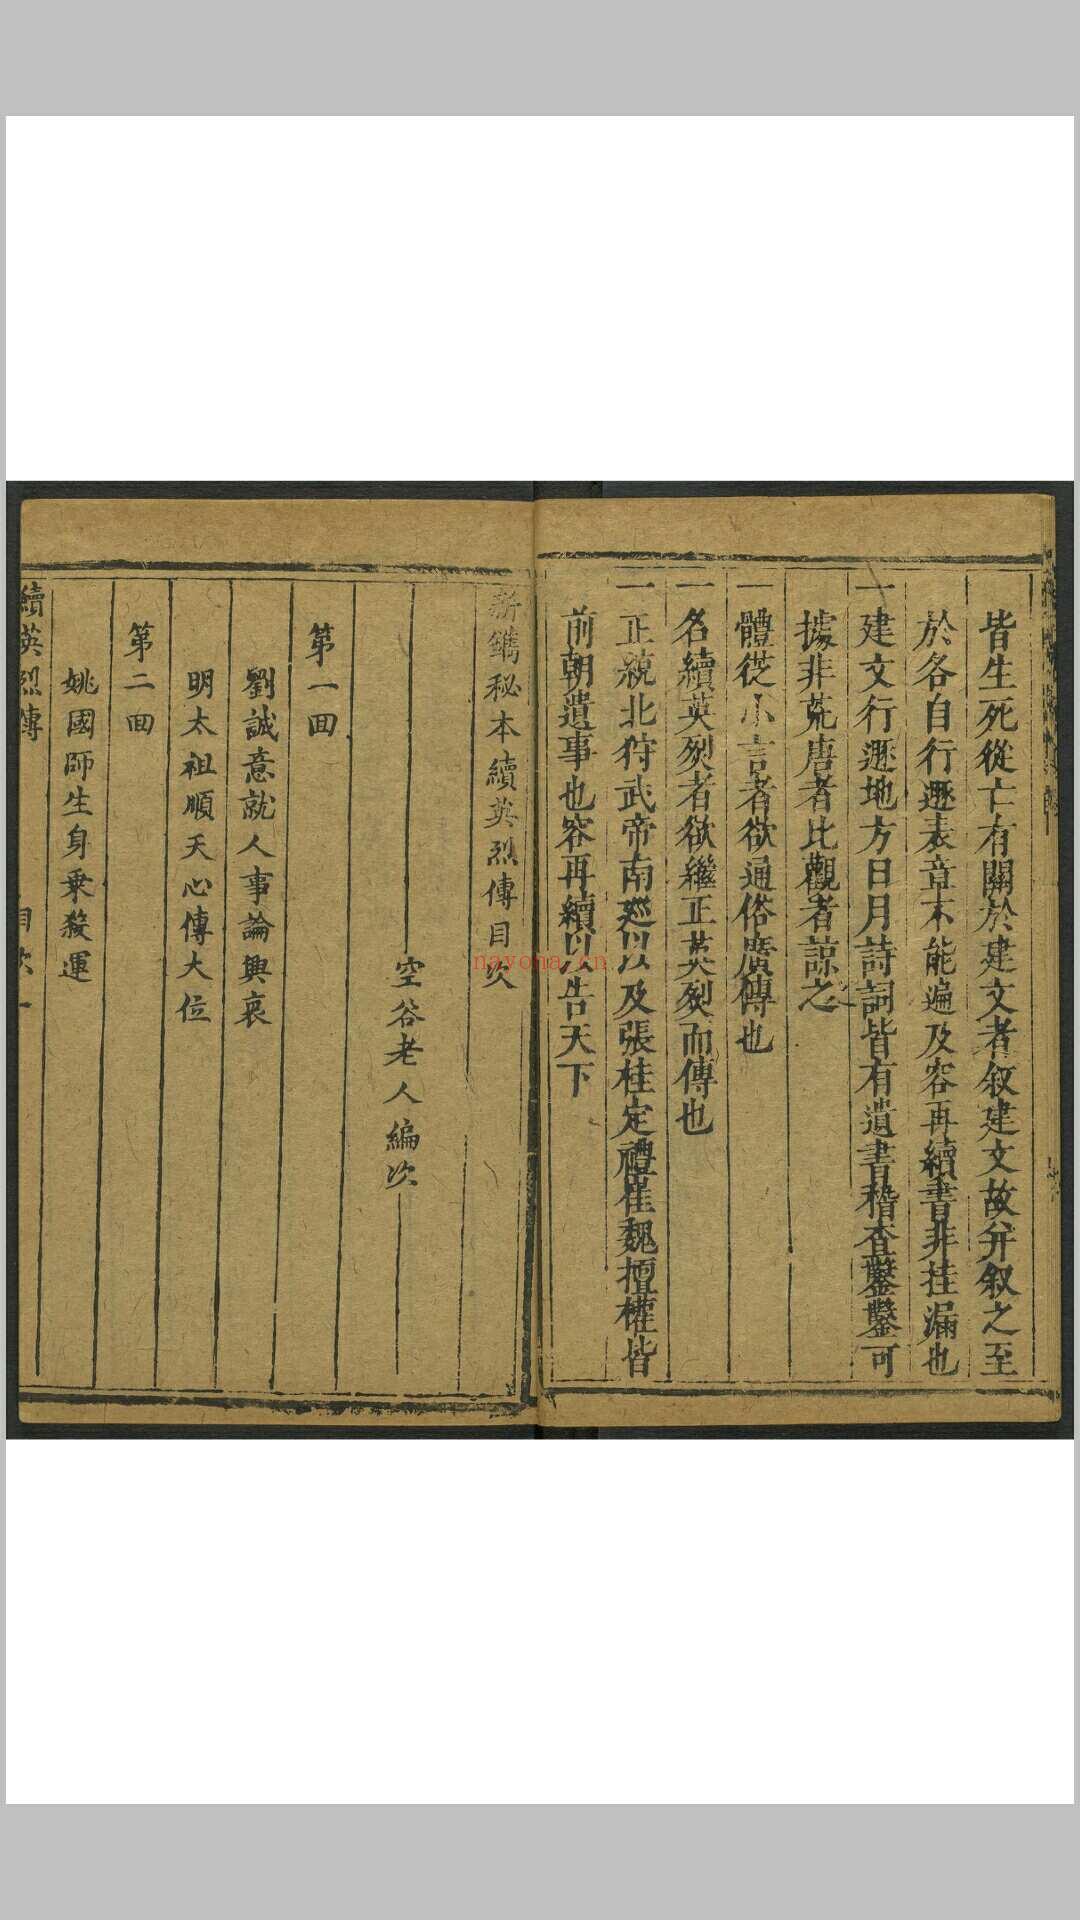 皆生死從亡有關於建文者叙建文故并叙之至
於各自行遯表章不能遍及容再續書非挂漏也
一建文行遯地方日月詩詞皆有遺書稽查鑿鑿可
據非荒唐者比觀者諒之
一體從小言者欲通俗廣傳也
一名續英烈者欲繼正英烈而傳也
一正統北狩武帝南廵以及張桂定禮崔魏擅權皆
前朝遺事也容再續以告天下
新鐫秘本續英烈傳目次
空谷老人編次
第一回
劉誠意就人事論興衰
明太祖順天心傳大位
第二回
姚國師生身乗殺運
續英烈傳 目次 一
nayona.cn